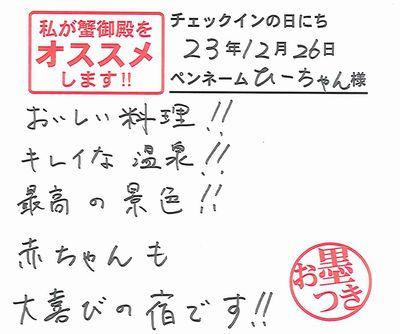 私が蟹御殿を
オススメ
します!!
チェックインの日にち
23年12月26日
ペンネームひーちゃん様
おいしい料理!!
キレイな温泉!!
最高の景色!!
赤ちゃんも
大喜びの宿です!!
お墨つき